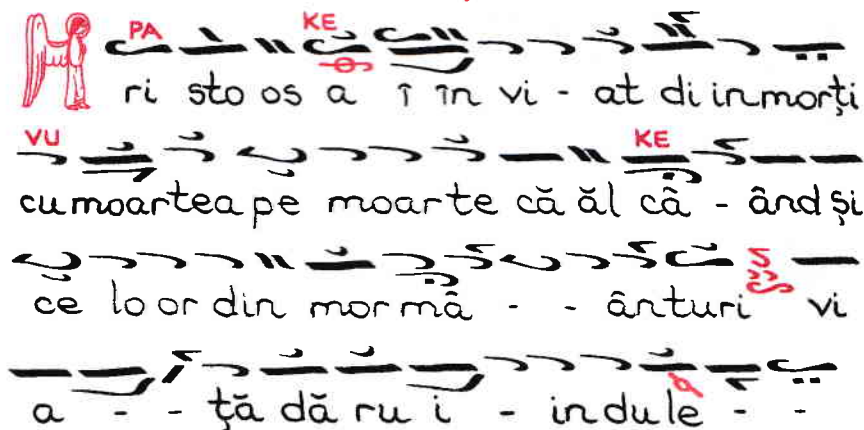 PA KE
H ri sto os a î în vi - at di in morți
VU KE
cu moartea pe moarte că ăl câ - ând și
ce lo or din mor mâ - - ânturi vi
a - - ță dă ru i - in du le - -